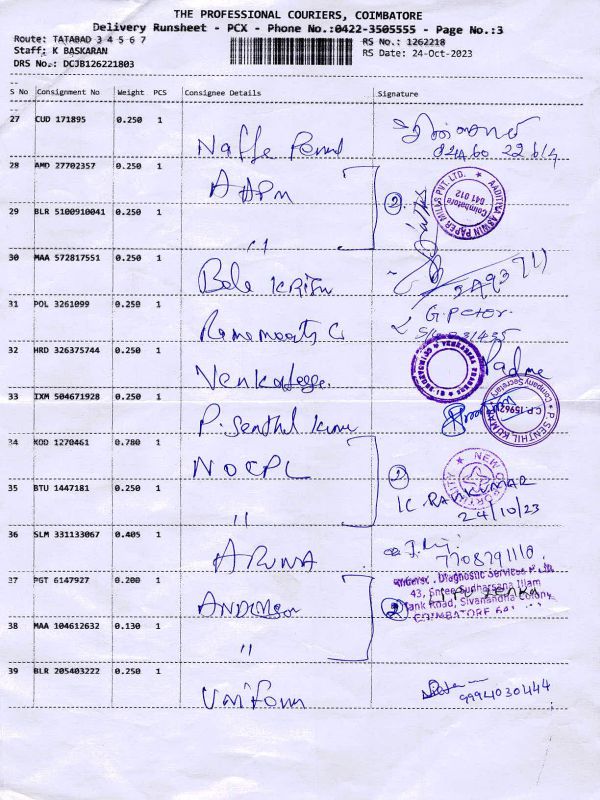 THE PROFESSIONAL COURIERS, COIMBATORE
Delivery Runsheet - PCX - Phone No.:0422-3505555 - Page No.:3
Route: TATABAD 3 4 5 6 7
RS No.: 1262218
Staff: K BASKARAN
RS Date: 24-Oct-2023
DRS No.: DCJB126221803
S No Consignment No Weight PCS Consignee Details Signature
27 CUD 171895 0.250 1
28 AMD 27702357 0.250 1
AAPM
2
AADITIYA ASWIN PAPER MILLS PVT. LTD.
Coimbatore
641 012
29 BLR 5100910041 0.250 1
"
30 MAA 572817551 0.250 1
Bala
31 POL 3261099 0.250 1
G. Peter
32 HRD 326375744 0.250 1
Padma
33 IXM 504671928 0.250 1
P. Senthil Kumar
P. SENTHIL KUMAR
Company Secretary
34 KOD 1270461 0.780 1
NOCPL
2
NEW
35 BTU 1447181 0.250 1
"
24/10/23
36 SLM 331133067 0.405 1
ARUNA
7708791110
37 PGT 6147927 0.200 1
Anderson
Diagnostic Services P Ltd
43, Sree Sudharsana Illam
Tank Road, Sivanandha Colony
COIMBATORE
2
38 MAA 104612632 0.130 1
"
39 BLR 205403222 0.250 1
Uniform
9994030444